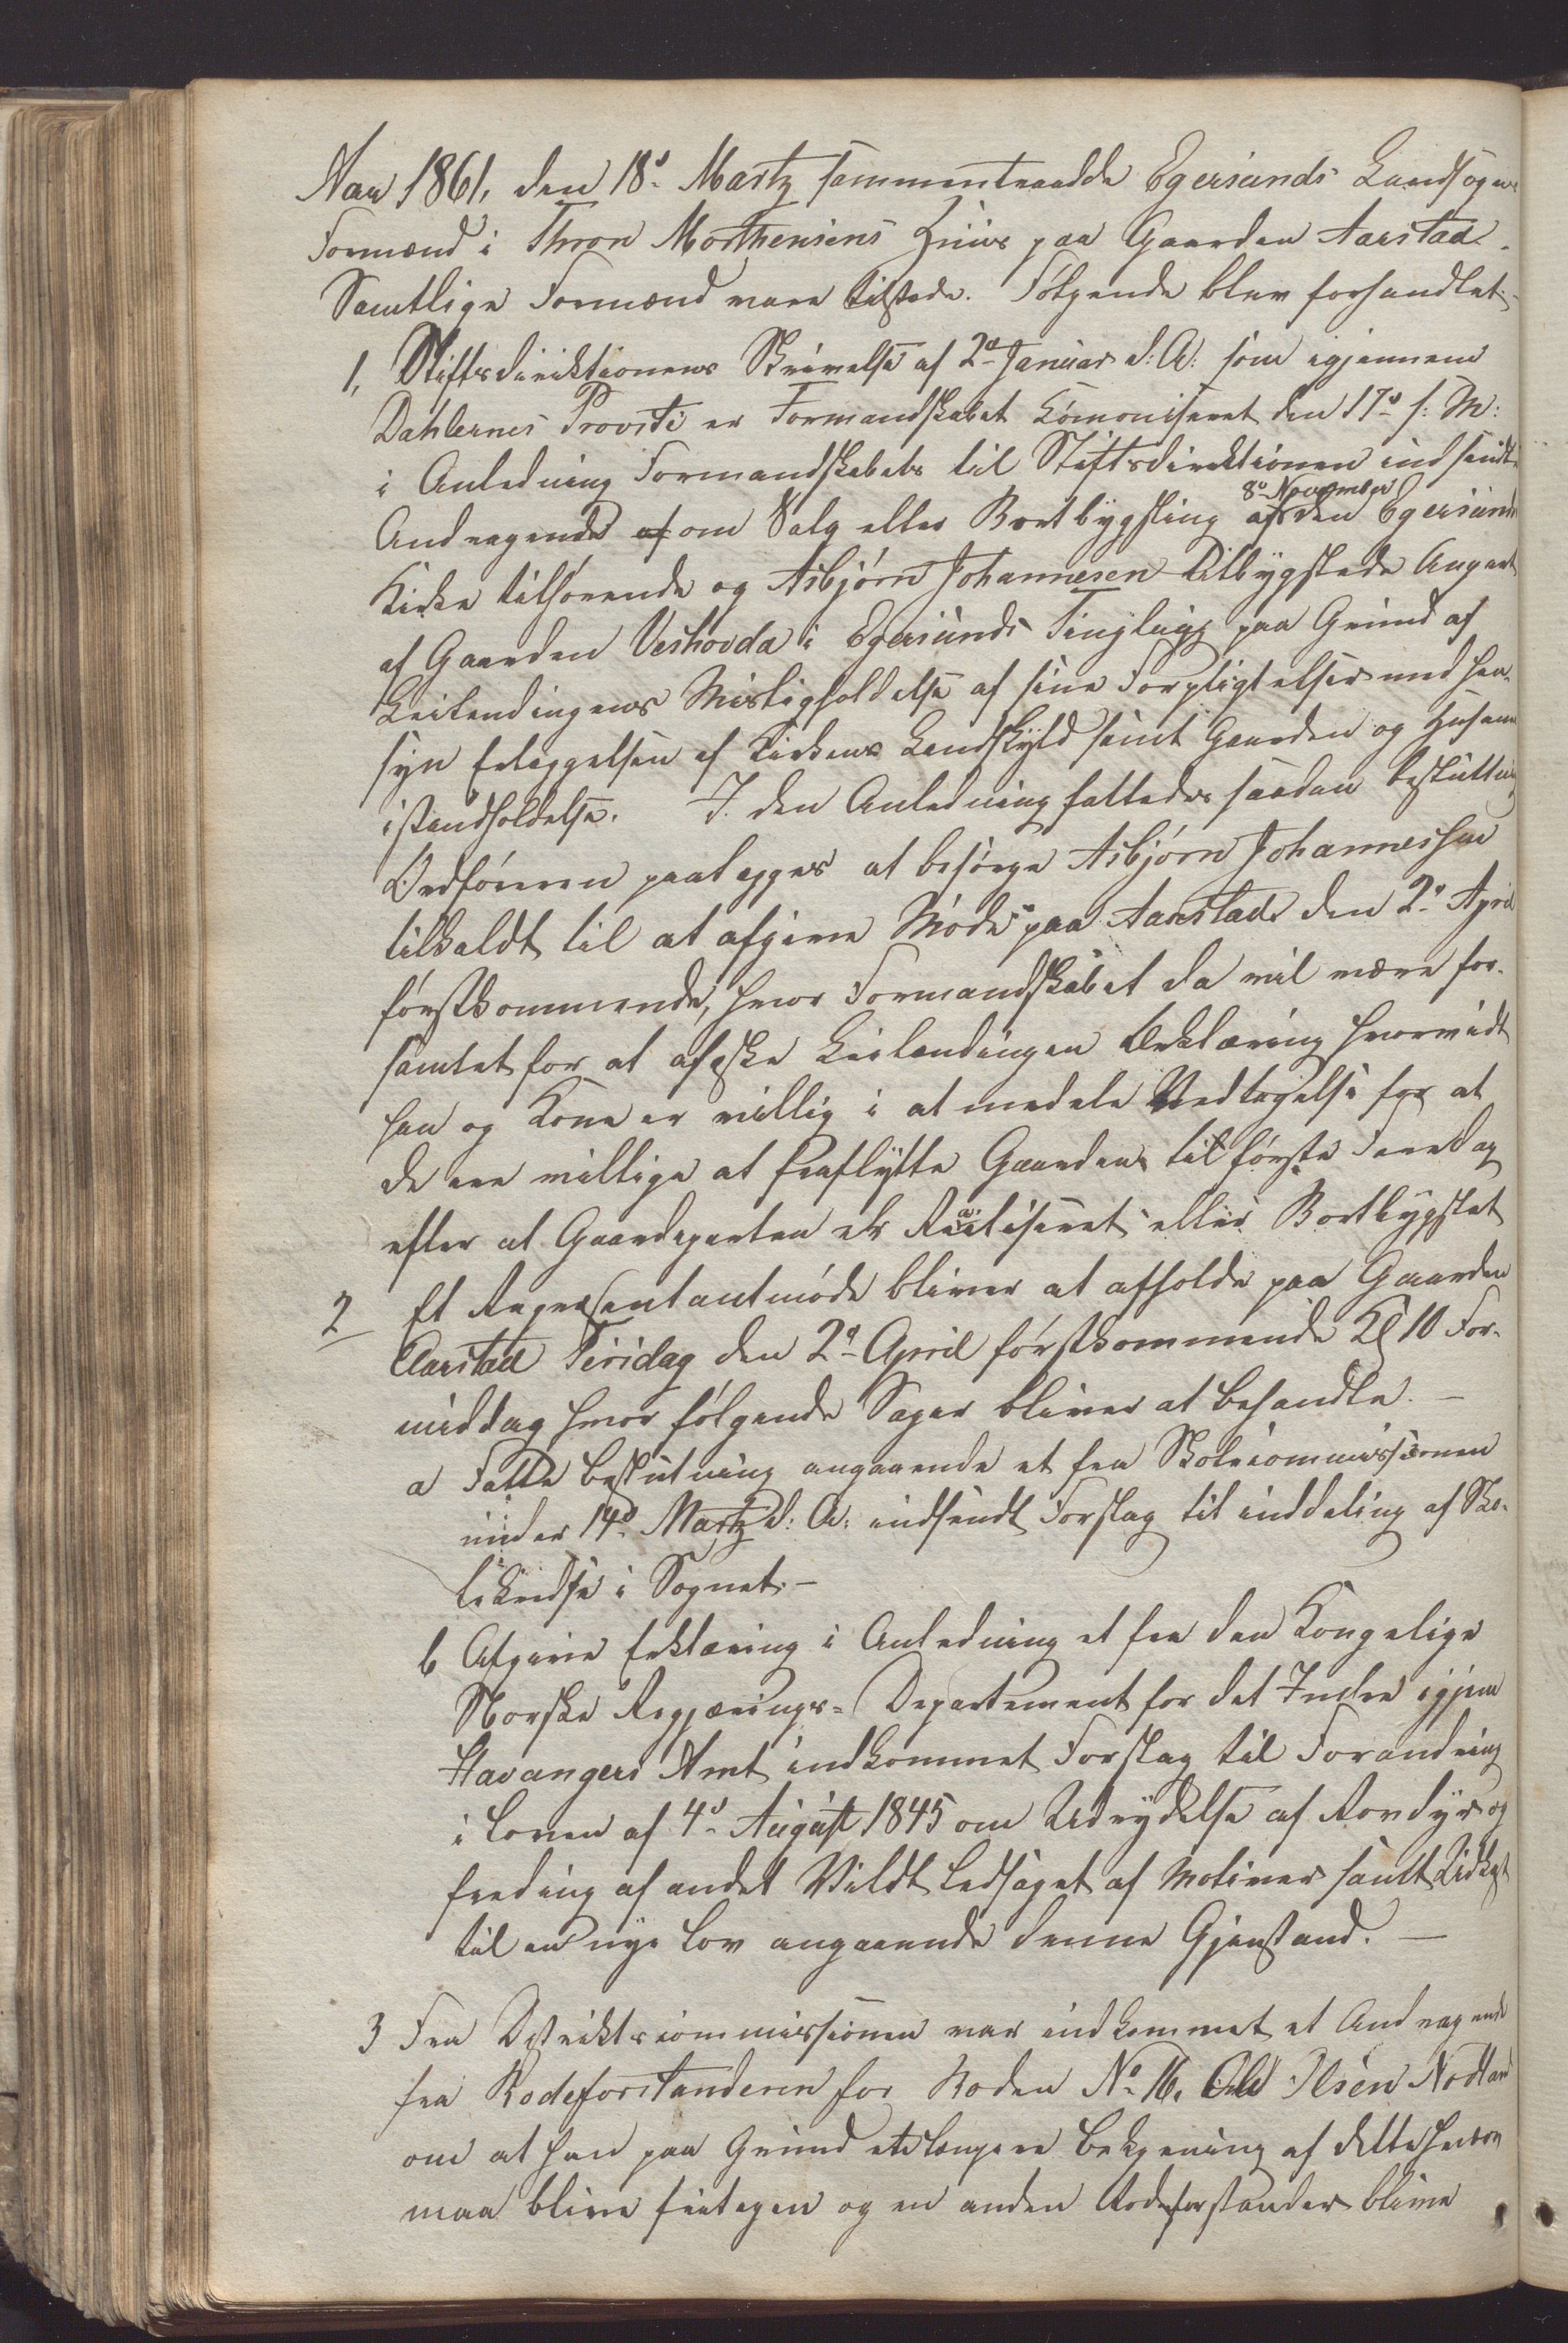 Aar 1861, den 18de Martz sammentraadde Egersunds Landsogns
Formænd i Thron Morthensens Huus paa Gaarden Aarstad.
Samtlige Formænd vare tilstede. Følgende blev forhandlet.
1, Stiftsdirektionens Skrivelse af 2d Januar d: A: som igjennem
Dahlernes Provsti er Formandskabet Komoniseret den 17de s: M:
i Anledning Formandskabets til Stiftsdirektionen indsendte
8de November
Andragende af om Salg eller Bortbygsling af den Egersunds
Kirke tilhørende og Asbjørn Johannesen tilbygslede Anpart
af Gaarden Veshovda i Egersunds Tinglaug paa Grund af
Leilendingens Misligholdelse af sine Forpligtelser med Hen-
syn Erlæggelsen af Kirkens Landskyld samt Gaarden og Husenes
istandholdelse. I den Anledning fattedes saadan Beslutning
Ordføreren paalægges at besørge Asbjørn Johannessen
tilkaldt til at afgive Møde paa Aarstad den 2d April
førstkommende, hvor Formandskabet da vil være for-
samlet for at afæske Leilændingen Erklæring hvorvidt
han og Kone er villig i at meddele Vedtagelse for at
de ere villige at fraflytte Gaarden til første Faredag
efter at Gaardparten er Realiseret eller Bortbygslet
2 Et Repræsentantmøde bliver at afholde paa Gaarden
Aarstad Tirsdag den 2d April førstkommende Kl 10 For-
middag hvor følgende Sager bliver at behandle. —
a Fatte Beslutning angaaende et fra Skolecommissionen
under 14d Martz d: A: indsendt Forslag til inddeling af Sko-
lekredse i Sognet. —
b Afgive Erklæring i Anledning et fra den Kongelige
Norske Regjærings-Departement for det Indre igjen
Stavangers Amt indkommet Forslag til Forandring
i Loven af 4d August 1845 om Udrydelse af Rovdyr og
freding af andet Vildt ledsaget af Motiver samt Udkast
til en nye Lov angaaende denne Gjenstand. —
3 Fra Distriktscommissionen var indkommet et Andragende
fra Rodeforstanderen for Roden No 16, Ole Ilsen Nodland
om at han paa Grund af længere Bekjening af dette Hverv
maa blive fritagen og en anden Rodeforstander blive